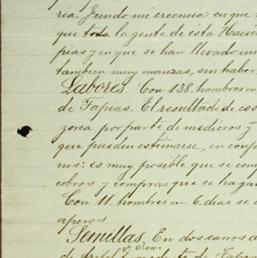 ria. Fundo mi creencia en que
que toda la gente de esta Hacie
pias y en que se han llevado un
tambien muy manzas, sin haber
Labores. Con 138 hombres en
de Tapias. El resultado de eso
gorea por parte de medieros y
que pueden estimarse, en confo
ms: es muy posible que se com
cobros y compras que se haga
Con 11 hombres en 6 dias se a
aperos
Semillas. En dos carros a
de